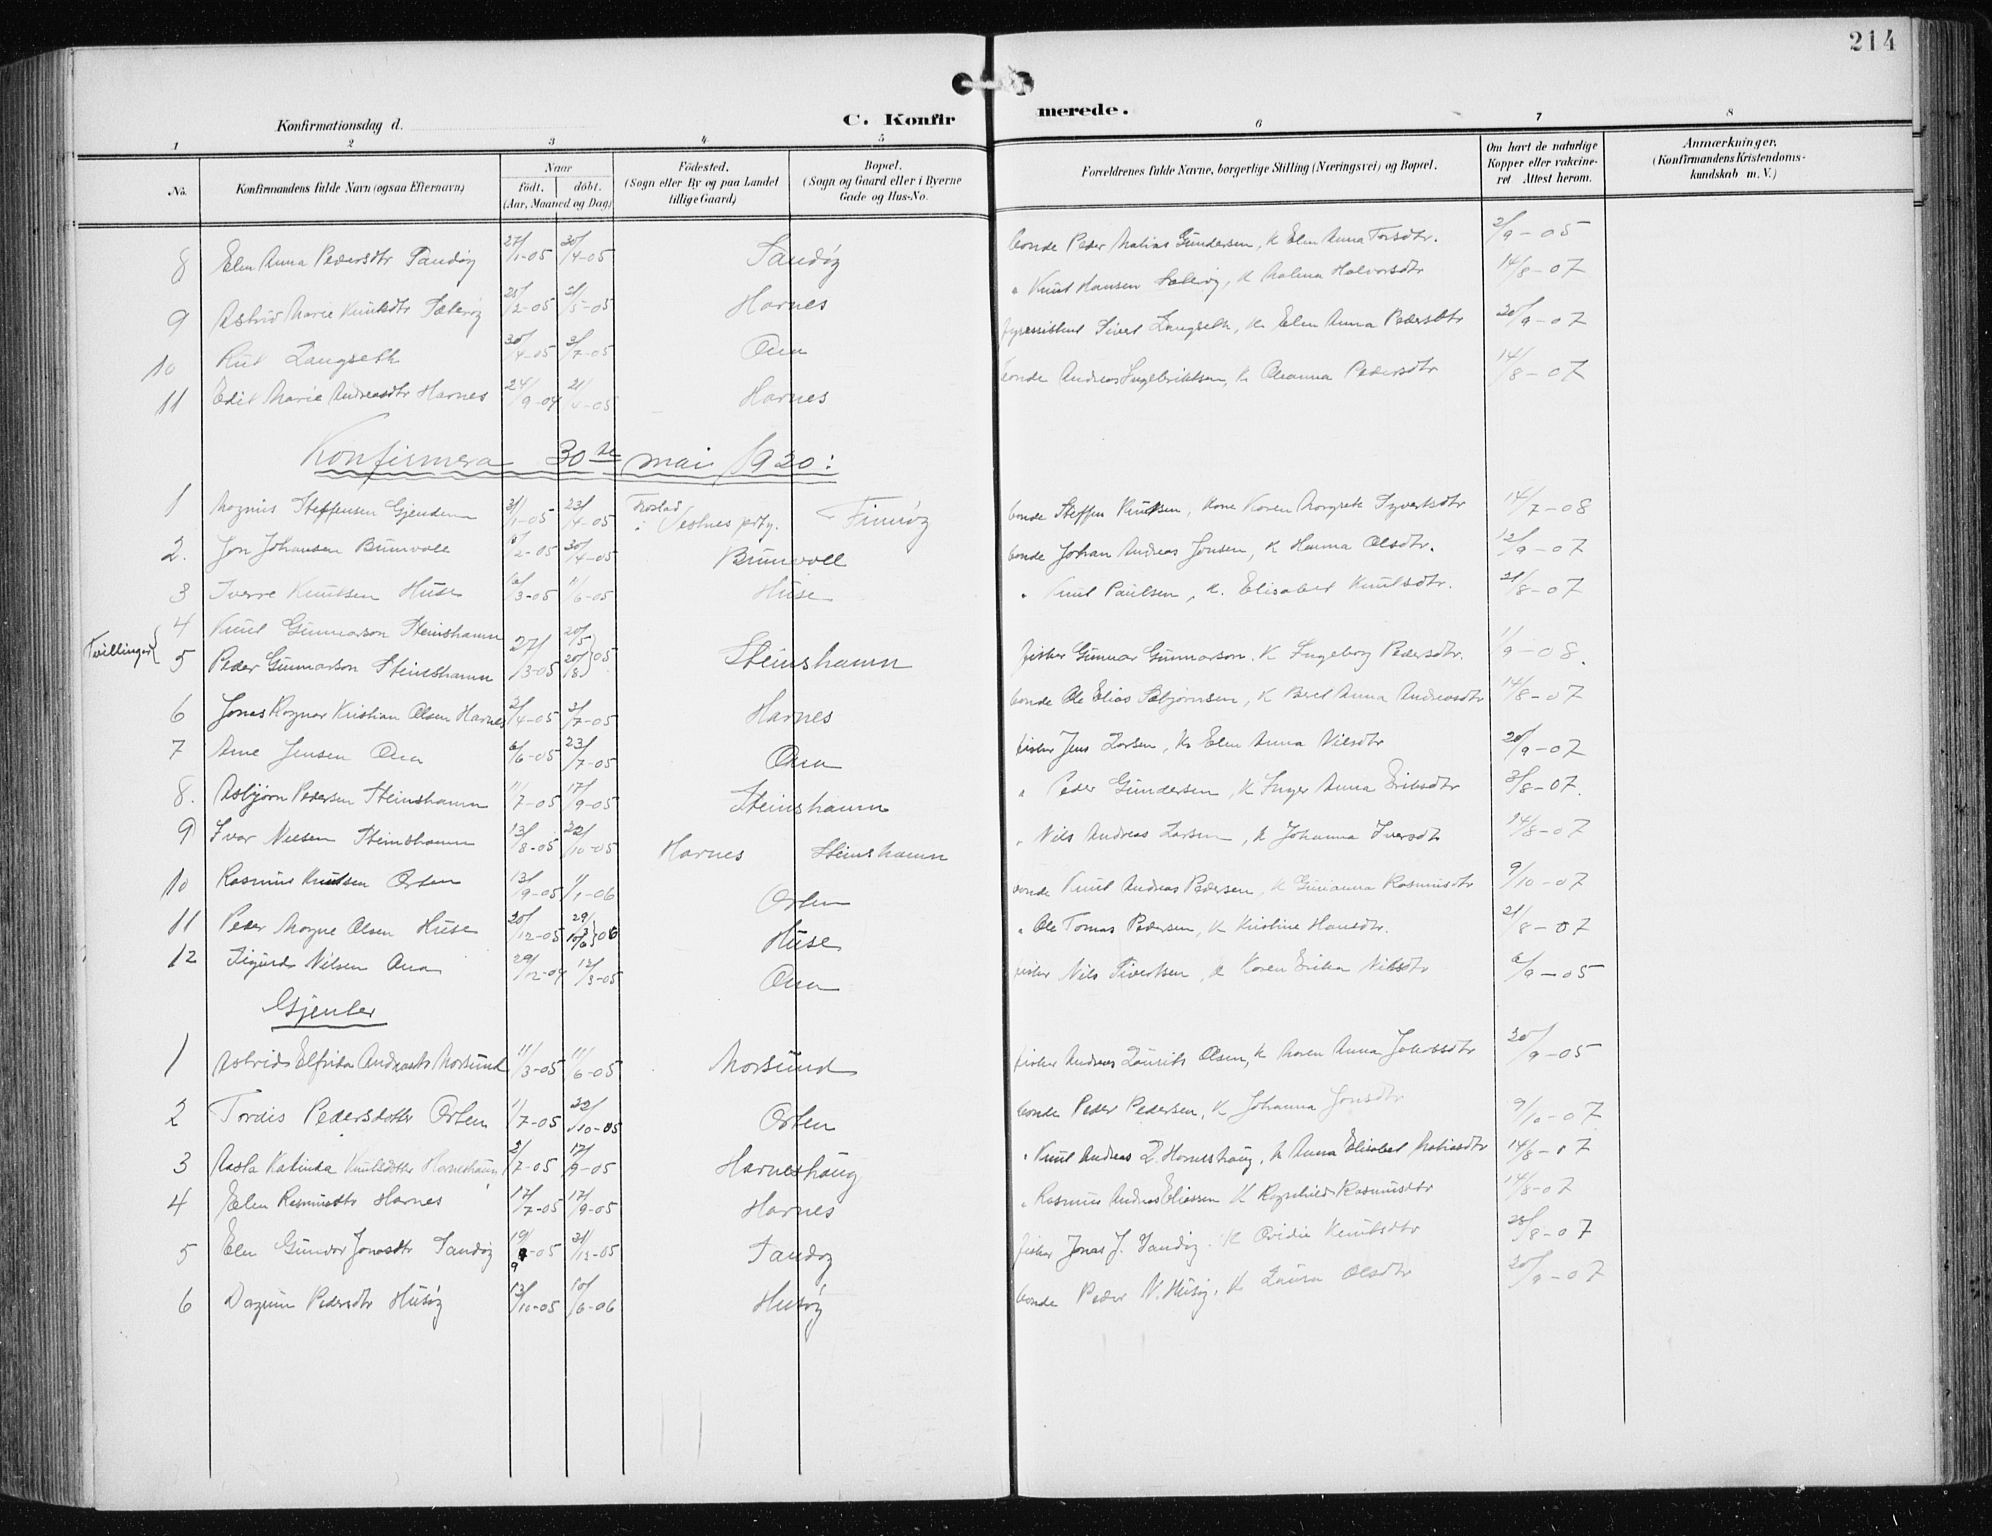 214
Konfirmationsdag d.
C. Konfirmerede.
1 2 3 4 5 6 7 8
No. Konfirmandens fulde Navn (ogsaa Efternavn) Naar født. døbt. (Aar, Maaned og Dag) Fødested. (Sogn eller By og paa Landet tillige Gaard) Bopæl. (Sogn og Gaard eller i Byerne Gade og Hus-No. Forældrenes fulde Navne, borgerlige Stilling (Næringsvei) og Bopæl. Om havt de naturlige Kopper eller vakcineret. Attest herom. Anmærkninger, (Konfirmandens Kristendomskundskab m. V.)
8 Elen Anna Pedersdtr Sandøy 27/1-05 30/4-05 Sandøy bonde Peder Matias Gundersen, K Elen Anna Torsdtr. 2/9-05
9 Astrid Marie Knutsdtr Sæterøy 25/2-05 21/5-05 Harnes " Knut Hansen Sæterøy, K Malena Halvorsdtr 14/8-07
10 Rut Langseth 30/4-05 2/7-05 Ona fyrassistent Sivert Langseth, K. Elen Anna Pedersdtr 20/9-07
11 Edit Marie Andreasdtr Harnes 24/9-04 21/4-05 Harnes bonde Andreas Ingebriktsen, K Oleanna Pedersdtr 14/8-07
Konfirmera 30te mai 1920:
1 Magnus Steffensen Gjendem 31/1-05 23/4-05 Vestnes prtg. Finnøy bonde Steffen Knutsen, Kone Karen Margrete Syvertsdtr 14/7-08
2. Jon Johansen Bumvoll /2-05 30/4-05 Bumvoll bonde Johan Andreas Jonsen, K Hanna Olsdtr. 12/9-07
3 Sverre Knutsen Huse 6/3-05 11/6-05 Huse " Knut Paulsen, K. Elisabet Knutsdtr. 21/8-07
4 Knut Gunnarson Steinshamn 20/5
Tvillinger 5 Peder Gunnarson Steinshamn 27/3-05 20/8 05 Steinshamn fisker Gunnar Gunnarson. K Ingeborg Pedersdtr. 1/9-08.
6 Jonas Ragnar Kristian Olsen Harnes 2/4-05 2/7-05 Harnes bonde Ole Elias Sæbjørnsen, K Beret Anna Andreasdtr 14/8-07
7 Arne Jensen Ona 6/6-05 23/7-05 Ona fisker Jens Larsen, K. Elen Anna Nilsdtr 20/9-07
8. Asbjørn Pedersen Steinshamn 11/7-05 17/9-05 Steinshamn " Peder Gundersen, K Inger Anna Eriksdtr 3/8-07.
9 Ivar Nilsen Steinshamn 13/8-05 22/10-05 Harnes Steinshamn " Nils Andreas Larsen, K Johanna Iversdtr 14/8-07
10 Rasmus Knutsen Orten 13/9-05 1/1-06 Orten bonde Knut Andreas Pedersen, K Gurianna Rasmusdtr 9/10-07
11 Peder Magne Olsen Huse 20/12-05 29/3 10/6 06 Huse " Ole Tomas Pedersen, K Kristine Hansdtr. 21/8-07
12 Sigurd Nilsen Ona 29/12-04 12/3-05 Ona fisker Nils Sivertsen, K Karen Erika Nilsdtr 6/9-05
Gjenter
1 Astrid Elfrida Andreasdtr Morsund 11/3-05 11/6-05 Morsund fisker Andreas Laurits Olsen, K Maren Anna Jakobsdtr 20/9-05
2 Tordis Pedersdotter Orten 1/7-05 22/10-05 Orten bonde Peder Pedersen, K Johanna Jonsdtr 9/10-07
3 Aasta Katinka Knutsdotter Harneshaug 2/7-05 17/9-05 Harneshaug " Knut Andreas L. Harneshaug, K Anna Elisabet Matiasdtr 14/8-07
4 Elen Rasmusdtr Harnes 17/7-05 17/9-05 Harnes " Rasmus Andreas Eliassen K Ragnhild Rasmusdtr 14/8-07
5 Elen Gunvor Jonasdtr Sandøy 19/9-05 31/12-05 Sandøy fisker Jonas J. Sandøy. K Ovidie Knutsdtr 28/8-07
6 Dagrun Pedersdtr Husøy 13/10-05 10/6-06 Husøy bonde Peder N. Husøy, K. Laura Olsdtr 20/9-07